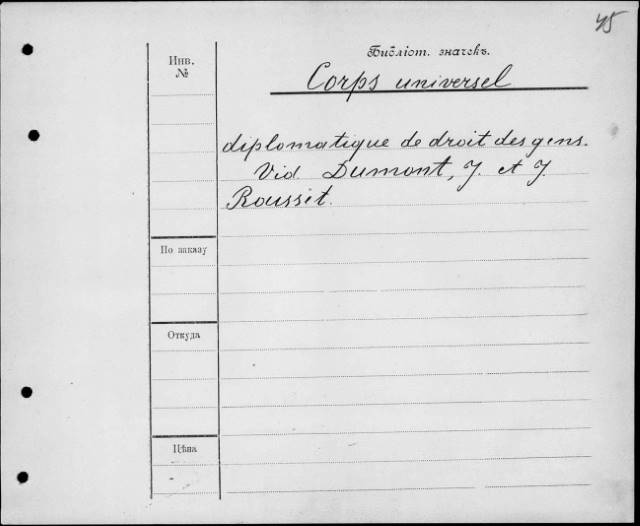 45
Библіот. значекъ.
Инв.
№
Corps universel
diplomatique de droit des gens.
Vid Dumont, J. et J.
Roussit.
По заказу
Откуда
Цѣна